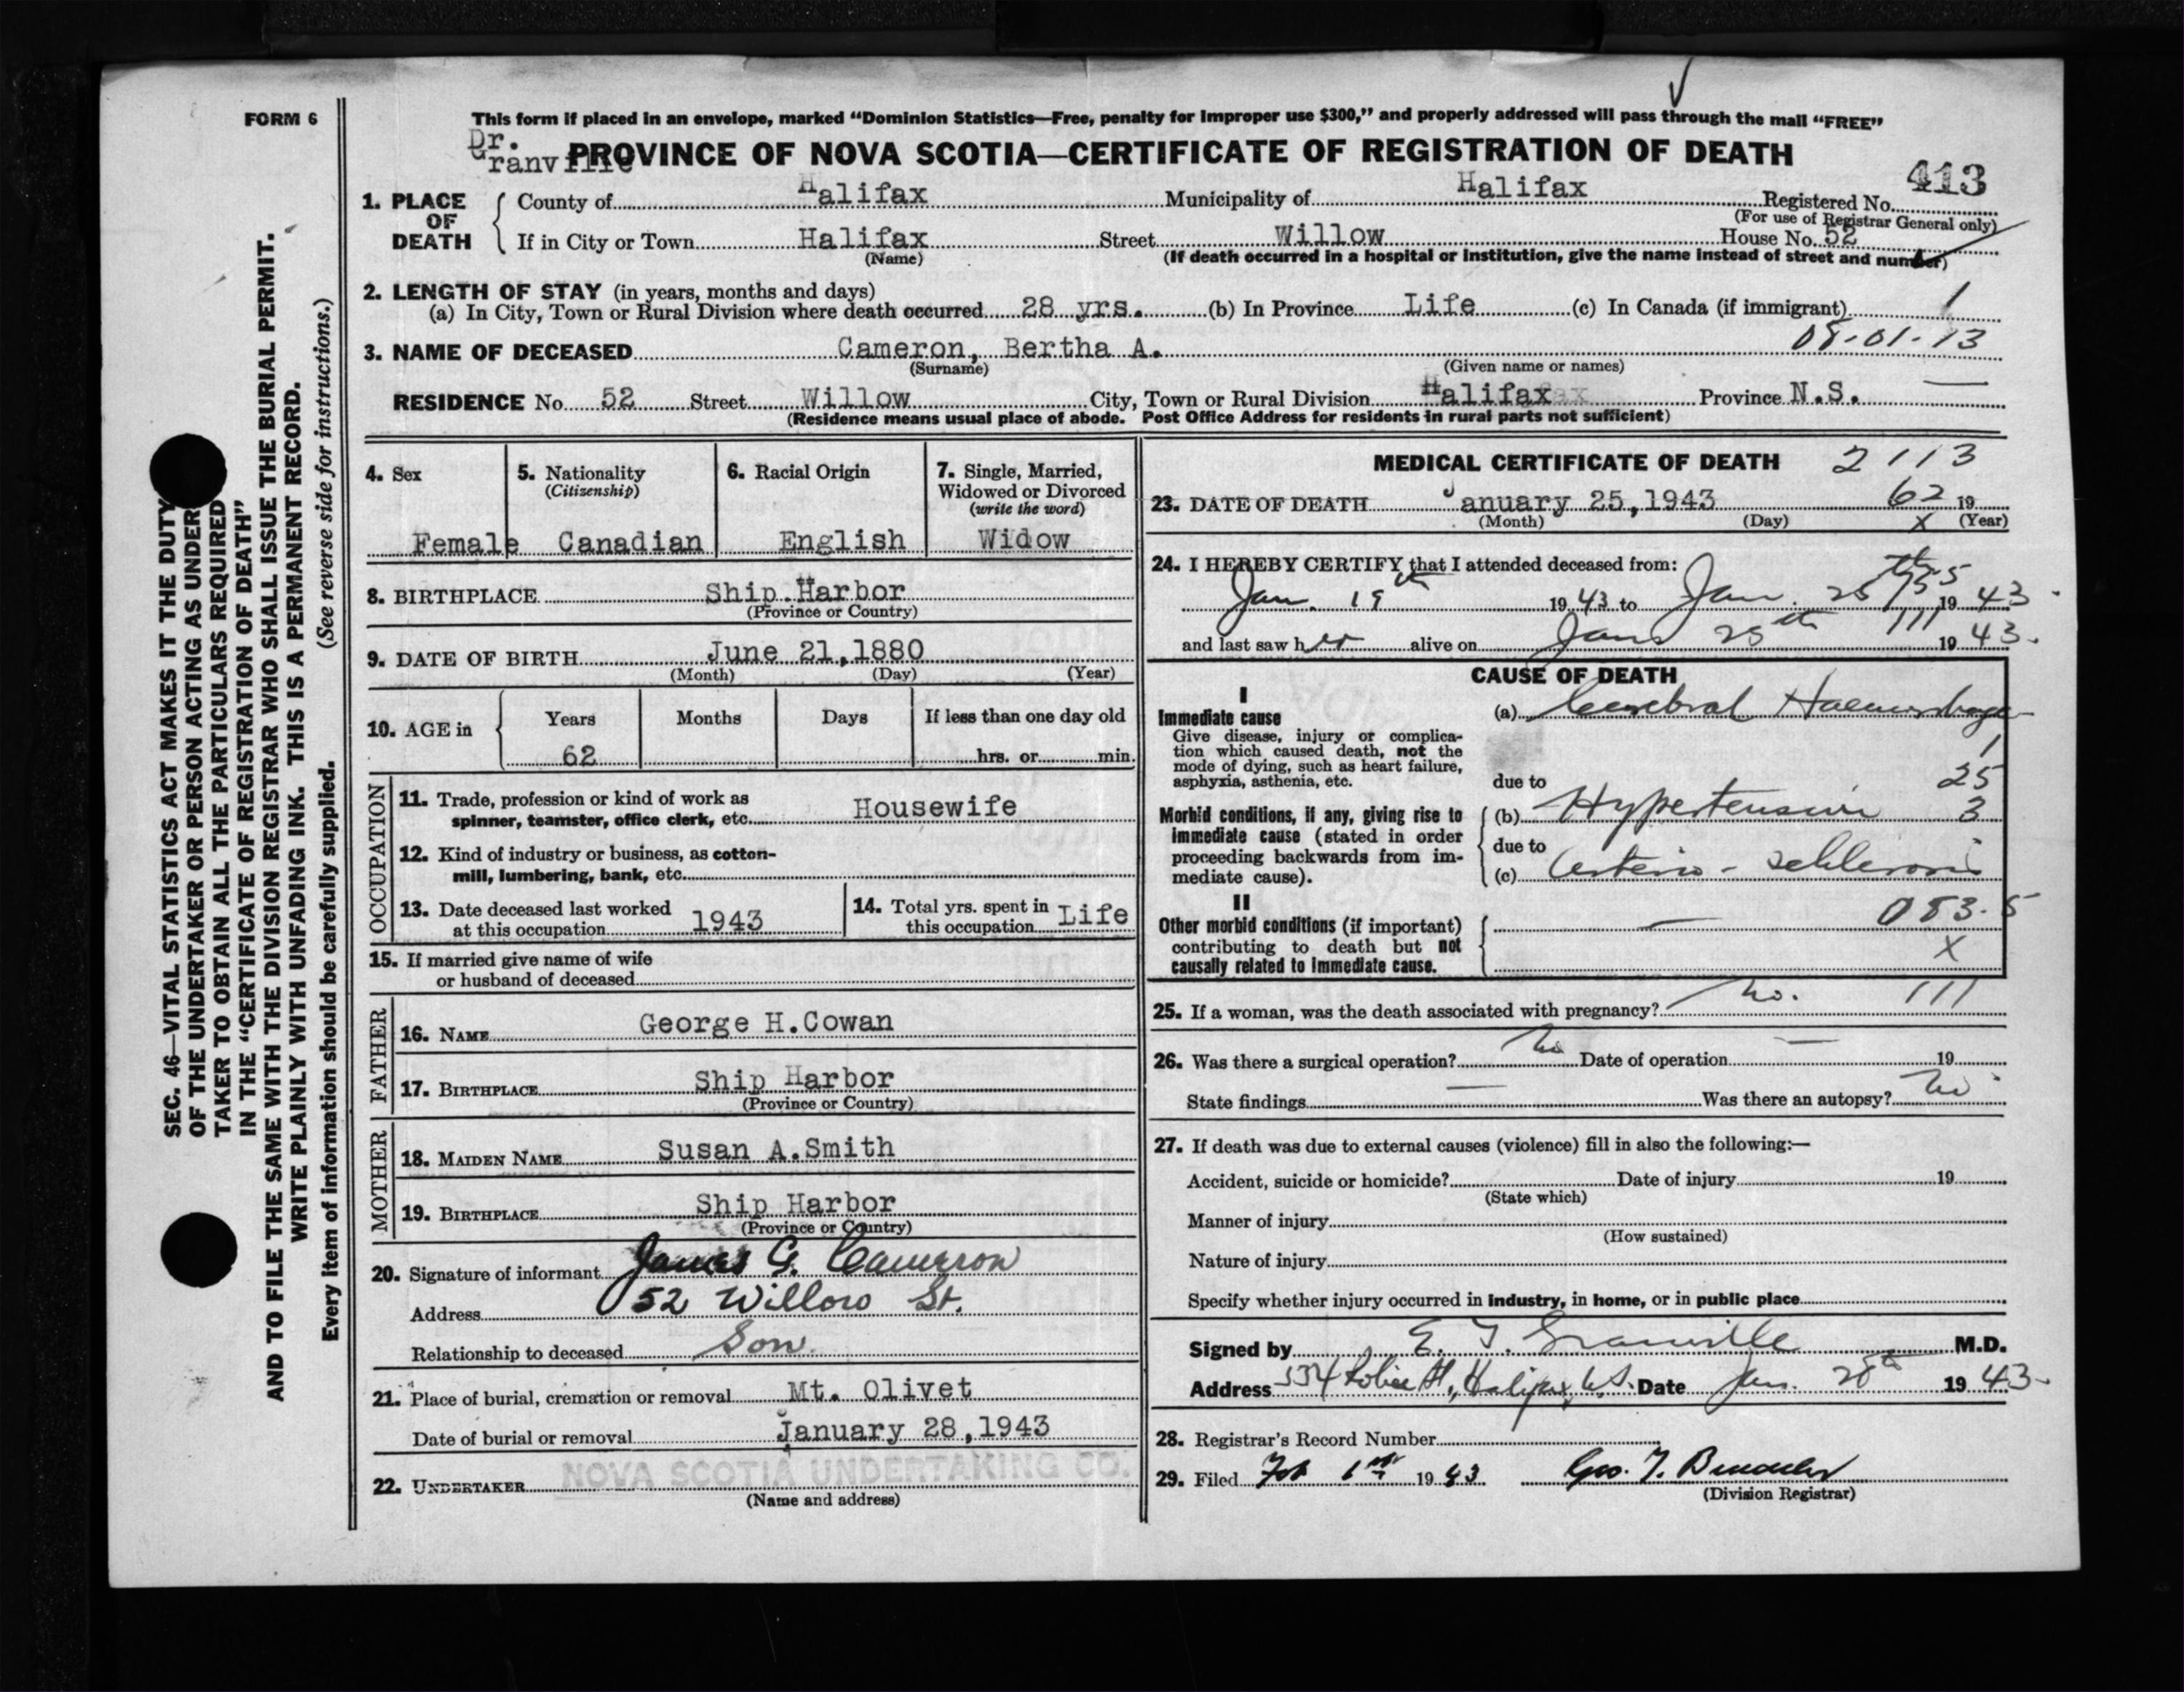 FORM 6
This form if placed in an envelope, marked "Dominion Statistics—Free, penalty for improper use $300," and properly addressed will pass through the mail "FREE"
Dr.
Granville
PROVINCE OF NOVA SCOTIA—CERTIFICATE OF REGISTRATION OF DEATH
413
1. PLACE OF DEATH
County of Halifax Municipality of Halifax Registered No.
(For use of Registrar General only)
If in City or Town Halifax Street Willow House No. 52
(Name) (If death occurred in a hospital or institution, give the name instead of street and number)
2. LENGTH OF STAY (in years, months and days)
(a) In City, Town or Rural Division where death occurred 28 yrs. (b) In Province Life (c) In Canada (if immigrant) 1
08-01-13
3. NAME OF DECEASED Cameron, Bertha A.
(Surname) (Given name or names)
RESIDENCE No. 52 Street Willow City, Town or Rural Division Halifax Province N.S.
(Residence means usual place of abode. Post Office Address for residents in rural parts not sufficient)
SEC. 46—VITAL STATISTICS ACT MAKES IT THE DUTY
OF THE UNDERTAKER OR PERSON ACTING AS UNDER
TAKER TO OBTAIN ALL THE PARTICULARS REQUIRED
IN THE "CERTIFICATE OF REGISTRATION OF DEATH"
AND TO FILE THE SAME WITH THE DIVISION REGISTRAR WHO SHALL ISSUE THE BURIAL PERMIT.
WRITE PLAINLY WITH UNFADING INK. THIS IS A PERMANENT RECORD.
Every item of information should be carefully supplied. (See reverse side for instructions.)
4. Sex
Female
5. Nationality
(Citizenship)
Canadian
6. Racial Origin
English
7. Single, Married,
Widowed or Divorced
(write the word)
Widow
8. BIRTHPLACE Ship Harbor
(Province or Country)
9. DATE OF BIRTH June 21, 1880
(Month) (Day) (Year)
10. AGE in
Years Months Days If less than one day old
62 hrs. or min.
OCCUPATION
11. Trade, profession or kind of work as
spinner, teamster, office clerk, etc. Housewife
12. Kind of industry or business, as cotton-
mill, lumbering, bank, etc.
13. Date deceased last worked
at this occupation 1943
14. Total yrs. spent in
this occupation Life
15. If married give name of wife
or husband of deceased
FATHER
16. NAME George H. Cowan
17. BIRTHPLACE Ship Harbor
(Province or Country)
MOTHER
18. MAIDEN NAME Susan A. Smith
19. BIRTHPLACE Ship Harbor
(Province or Country)
20. Signature of informant James G. Cameron
Address 52 Willow St.
Relationship to deceased Son
21. Place of burial, cremation or removal Mt. Olivet
Date of burial or removal January 28, 1943
22. UNDERTAKER NOVA SCOTIA UNDERTAKING CO.
(Name and address)
MEDICAL CERTIFICATE OF DEATH 2113
23. DATE OF DEATH January 25, 1943 62 19
(Month) (Day) X (Year)
24. I HEREBY CERTIFY that I attended deceased from:
Jan. 19th 1943 to Jan. 25th 1943
and last saw her alive on Jan. 25th 111 1943.
CAUSE OF DEATH
I
Immediate cause
Give disease, injury or complica-
tion which caused death, not the
mode of dying, such as heart failure,
asphyxia, asthenia, etc.
(a) Cerebral Haemorrhage
1
due to 25
Morbid conditions, if any, giving rise to
immediate cause (stated in order
proceeding backwards from im-
mediate cause).
(b) Hypertension 3
due to
(c) Arterio-schlerosis
II
Other morbid conditions (if important)
contributing to death but not
causally related to immediate cause.
083.5
X
25. If a woman, was the death associated with pregnancy? no. 111
26. Was there a surgical operation? No Date of operation — 19
State findings — Was there an autopsy? No
27. If death was due to external causes (violence) fill in also the following:—
Accident, suicide or homicide? Date of injury 19
(State which)
Manner of injury
(How sustained)
Nature of injury
Specify whether injury occurred in industry, in home, or in public place
Signed by E. F. Granville M.D.
Address 334 Robie St., Halifax, N.S. Date Jan. 28th 1943.
28. Registrar's Record Number
29. Filed Feb 1st 1943 Geo.
(Division Registrar)